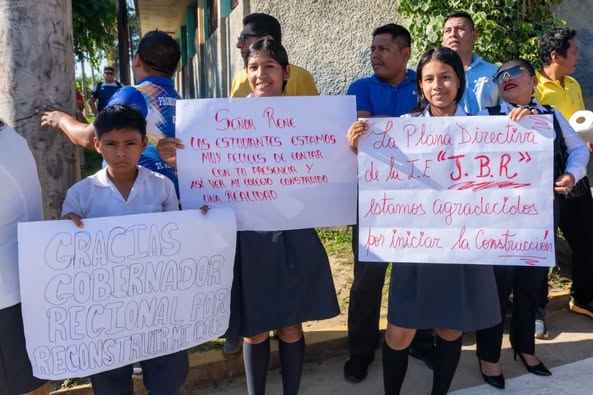 GRACIAS
GOBERNADOR
REGIONAL POR
RECONSTRUIR MI COLE
Señor Rene
LOS ESTUDIANTES ESTAMOS
MUY FELICES DE CONTAR
CON TU PRESENCIA Y
ASÍ VER MI COLEGIO CONSTRUIDO
UNA REALIDAD
La Plana Directiva
de la I.E "J.B.R"
Estamos agradecidos
por iniciar la Construcción